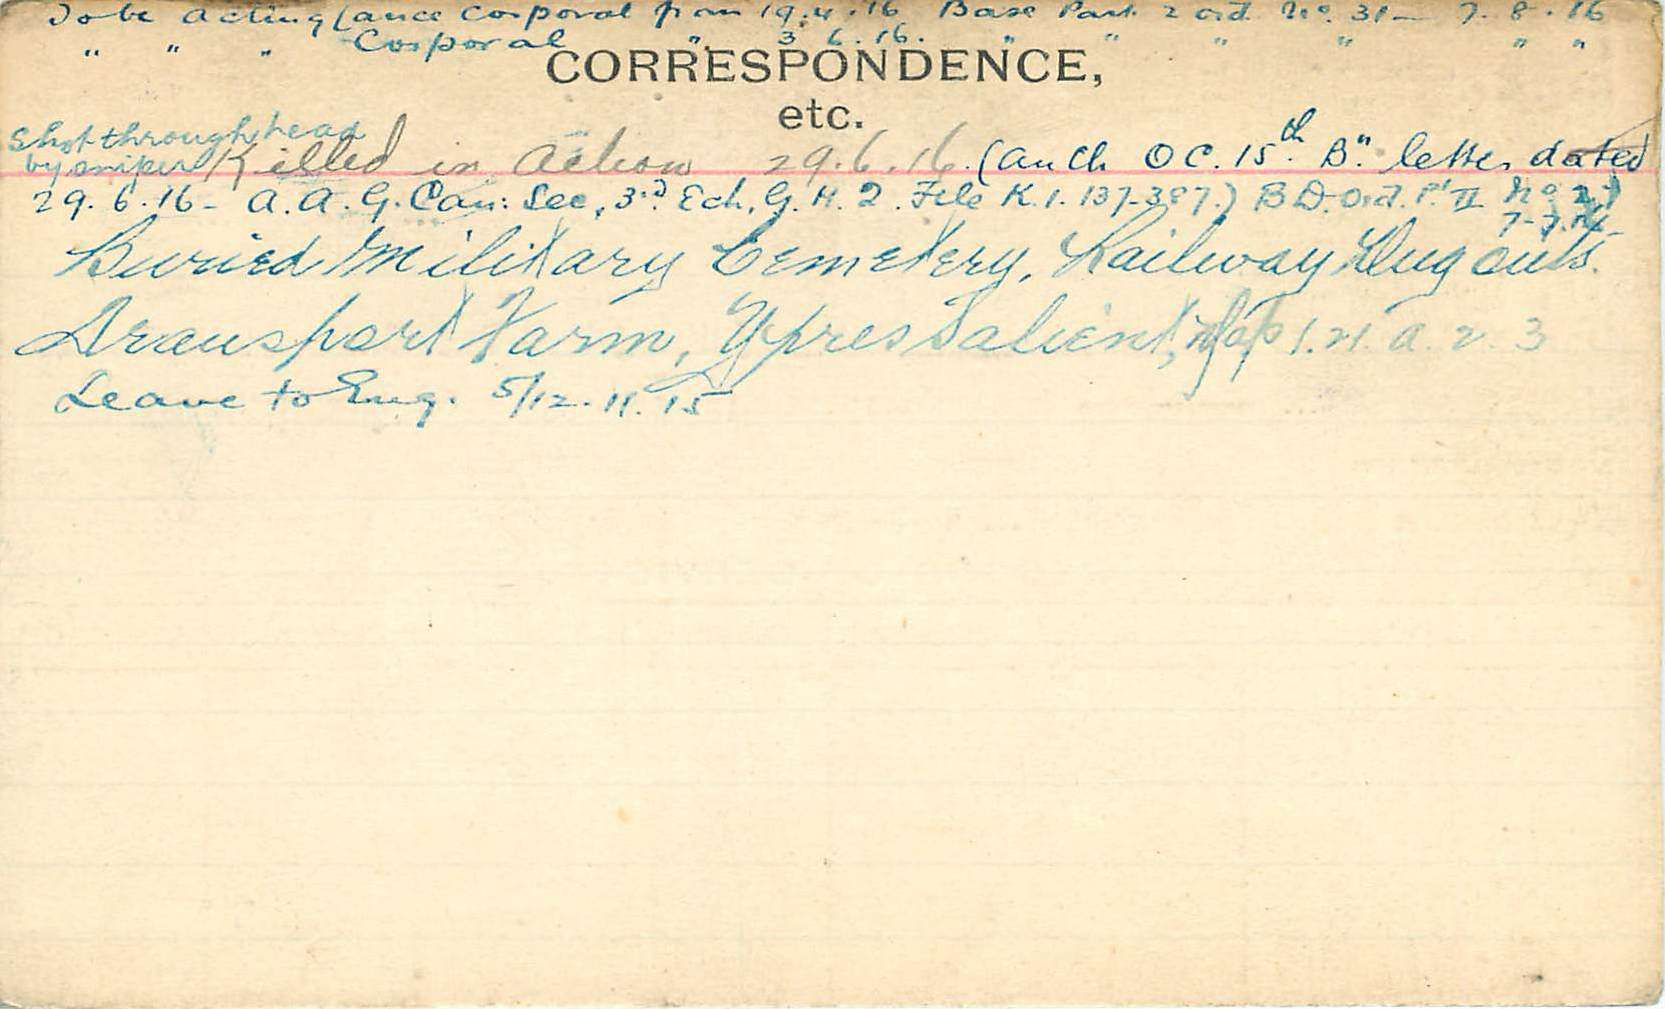 To be Acting Lance Corporal from 19.4.16 Base Part 2 ord. No. 31 - 7.8.16
" " " Corporal " 3.6.16. " " " " " "
CORRESPONDENCE,
etc.
Shot through head
by sniper Killed in Action 29.6.16. (Auth OC. 15th Bn. letter dated
29.6.16 - A.A.G. Can: Sec, 3rd Ech, G.H.Q. File K.1.137-387.) B.D. Ord. Pt II No
7-7.16
Buried Military Cemetery, Railway Dugouts.
Transport Farm, Ypres Salient, Map 1.21.a.2.3
Leave to Eng. 5/12.11.15